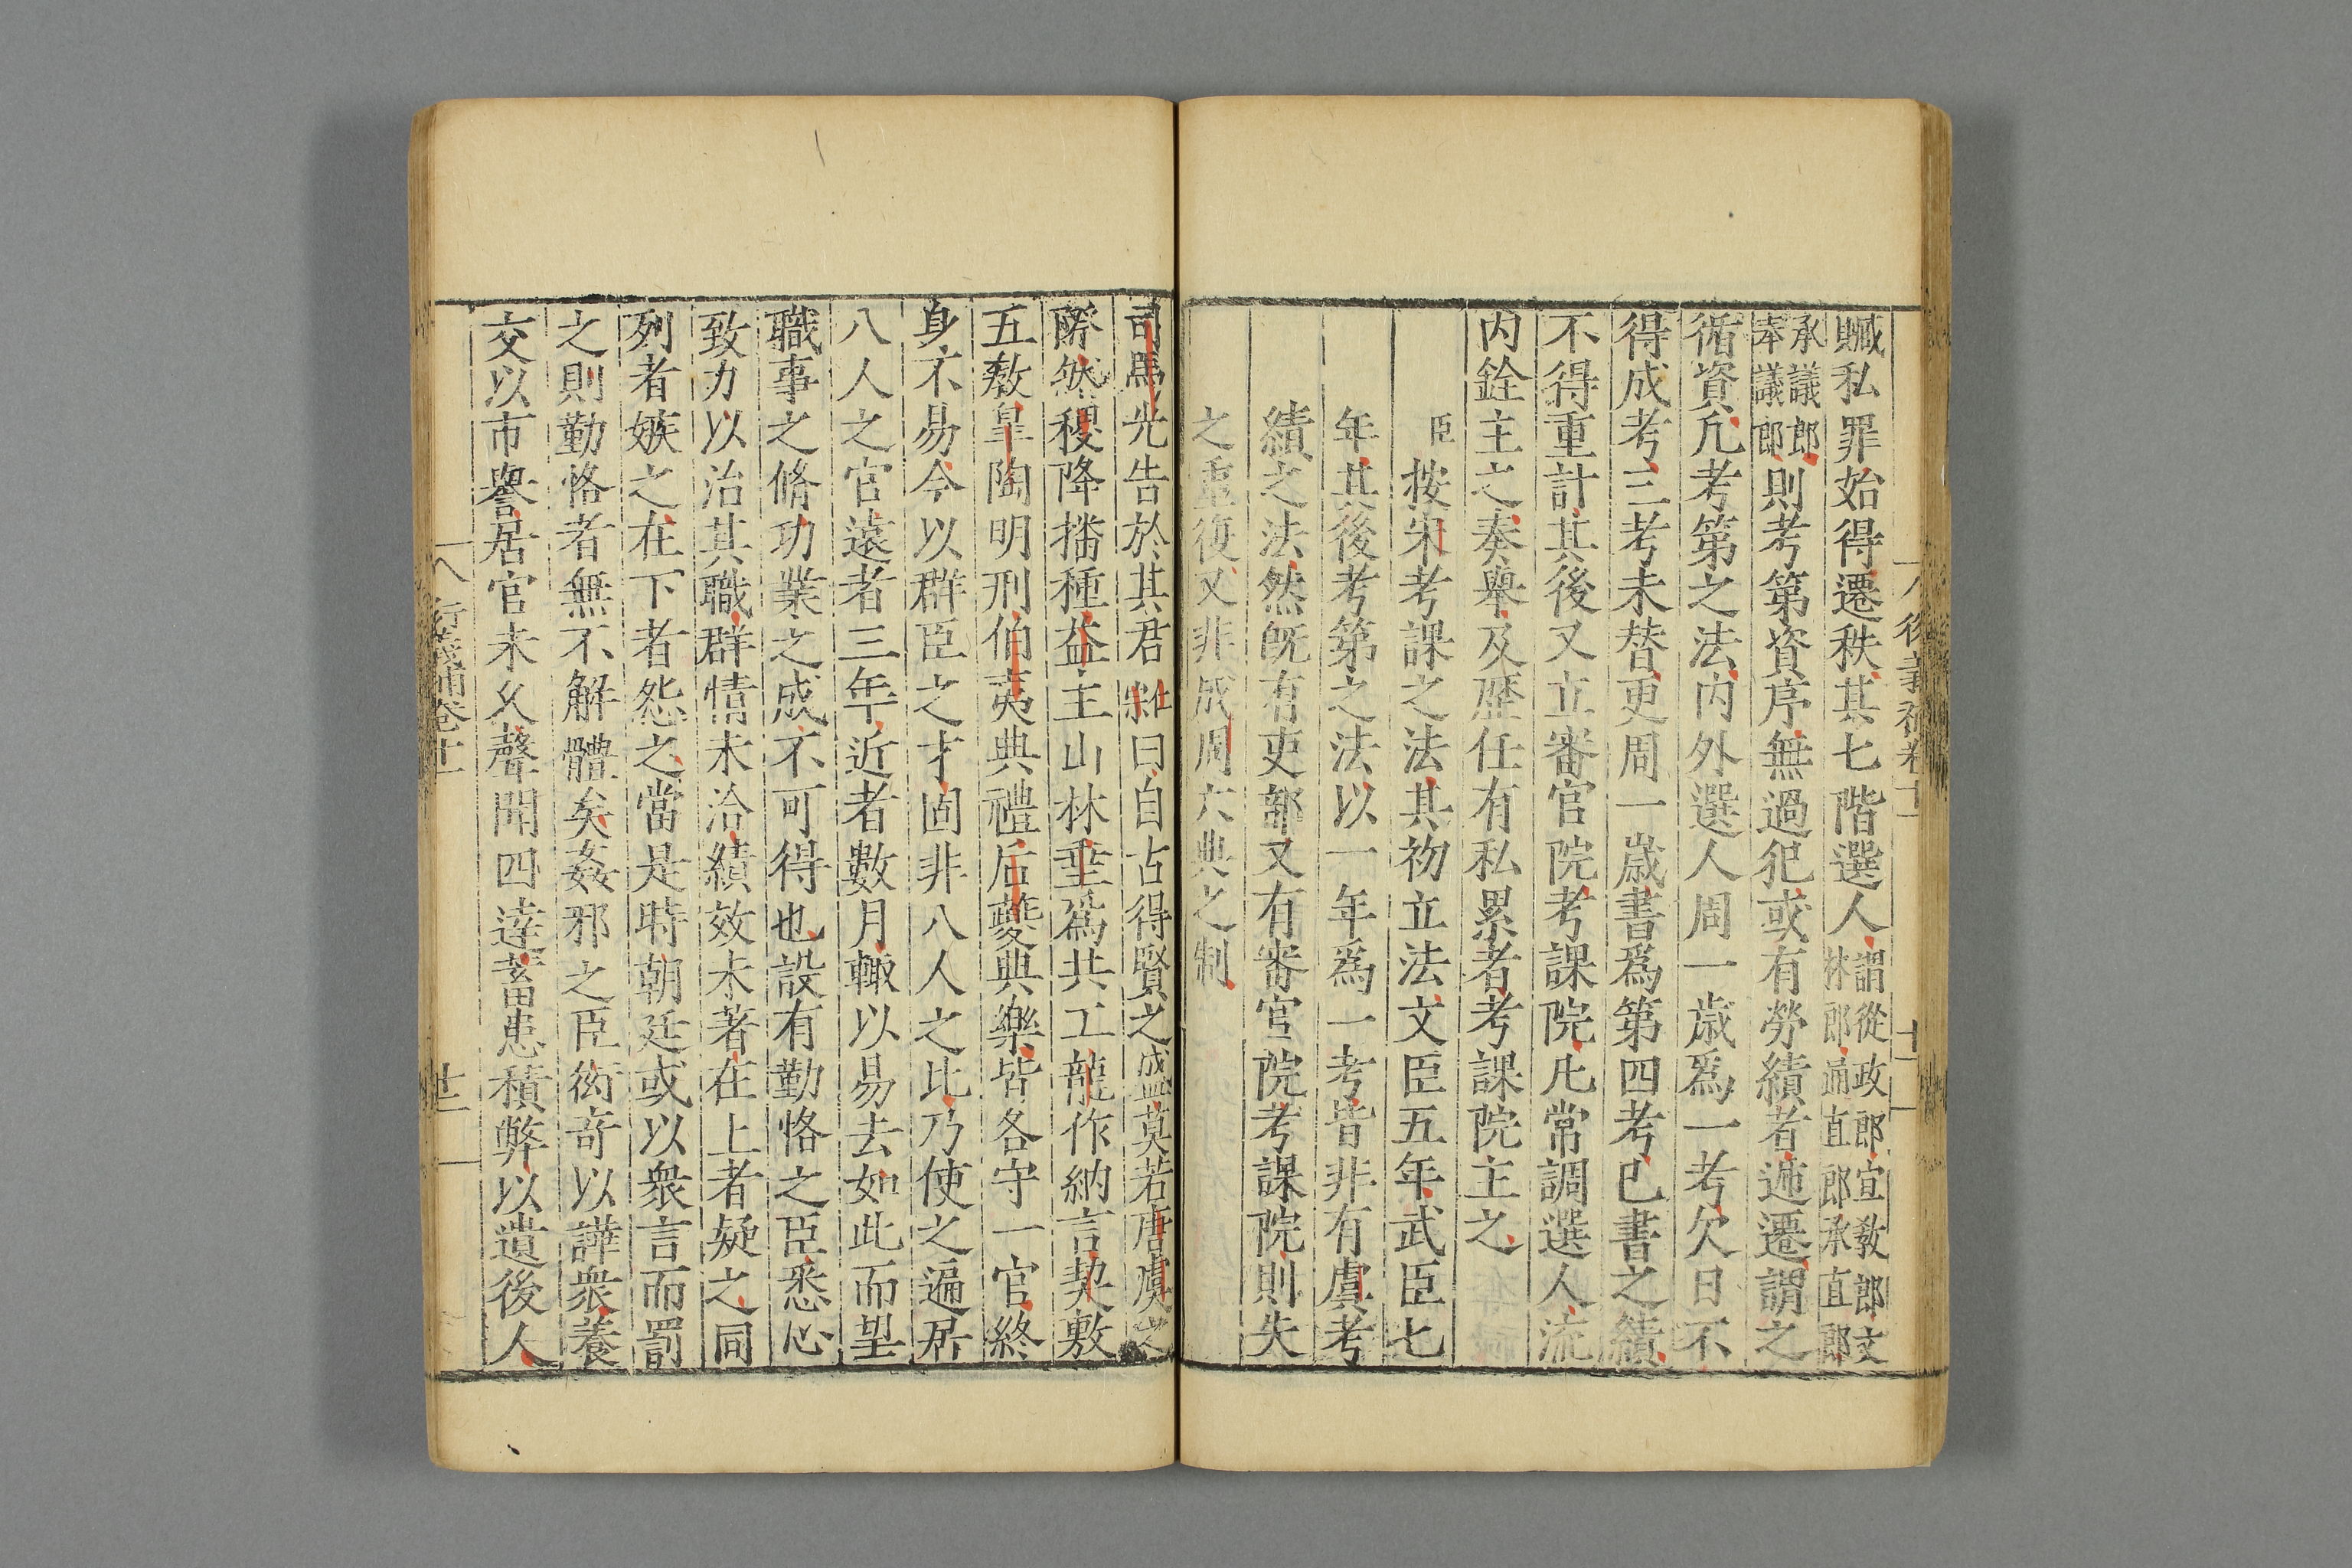 贓私罪始得遷秩其七階選人謂從政郎宣教郎文林郎通直郎承直郎
承議郎奉議郎則考第資序無過犯或有勞績者遞遷謂之
循資凡考第之法内外選人周一歳爲一考欠日不
得成考三考未替更周一歳書爲第四考已書之績
不得重計其後又立審官院考課院凡常調選人流
内銓主之奏舉及歷任有私累者考課院主之
臣按宋考課之法其初立法文臣五年武臣七
年其後考第之法以一年爲一考皆非有虞考
績之法然既有吏部又有審官院考課院則失
之重復又非成周六典之制
司馬光告於其君曰自古得賢之盛莫若唐虞之
際然稷降播種益主山林垂爲共工龍作納言契敷
五教皐陶明刑伯夷典禮后夔典樂皆各守一官終
身不易今以群臣之才固非八人之比乃使之遍居
八人之官遠者三年近者數月輙以易去如此而望
職事之脩功業之成不可得也設有勤恪之臣悉心
致力以治其職群情未洽績效未著在上者疑之同
列者嫉之在下者怨之當是時朝廷或以衆言而罰
之則勤恪者無不解體矣姦邪之臣衒奇以譁衆養
交以市譽居官未久聲聞四達蓄患積弊以遺後人
衍義補卷十一